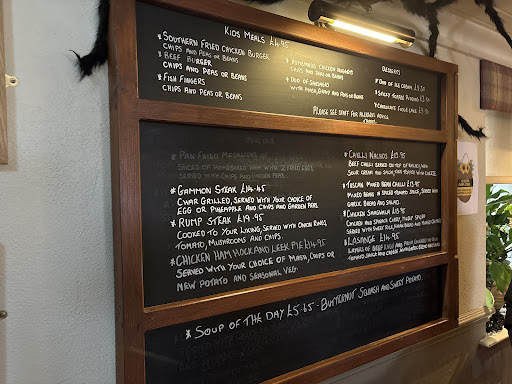 Kids Meals £6.95
* Southern Fried Chicken Burger
Chips and Peas or Beans
* Beef Burger
Chips and Peas or Beans
* Fish Fingers
Chips and Peas or Beans
* Homemade Chicken Nuggets
Chips and Peas or Beans
* Duo of Sausages
with Mash, Gravy and Peas or Beans
Desserts
* Duo of Ice Cream
* Sticky Toffee Pudding
* Chocolate Fudge Cake
Please see staff for Allergy Advice
* Pan Fried Medallions of
Slices of Homebaked Ham with 2 Fried Eggs,
Served with Chips and Garden Peas.
* Gammon Steak £14.45
Char Grilled, Served with Your Choice of
Egg or Pineapple and Chips and Garden Peas.
* Rump Steak £19.95
Cooked to Your Liking, Served with Onion Rings,
Tomato, Mushrooms and Chips.
* Chicken Ham Hock and Leek Pie £14.95
Served with Your Choice of Mash, Chips or
New Potato and Seasonal Veg.
* Chilli Nachos £13.95
Beef Chilli Served on Top of Nachos, with
Sour Cream and Salsa, then Topped with Cheese.
* Tuscan Mixed Bean Chilli £13.95
Mixed Beans in a Spicy Tomato Sauce, Served with
Garlic Bread and Salad.
* Chicken Saagwala £13.95
Chicken and Spinach Curry, Medium Spiced
Served with
* Lasange £14.95
Layers of Beef
Tomato Sauce and Cheese
* Soup of the Day £5.65 - Butternut Squash and Sweet Potato.